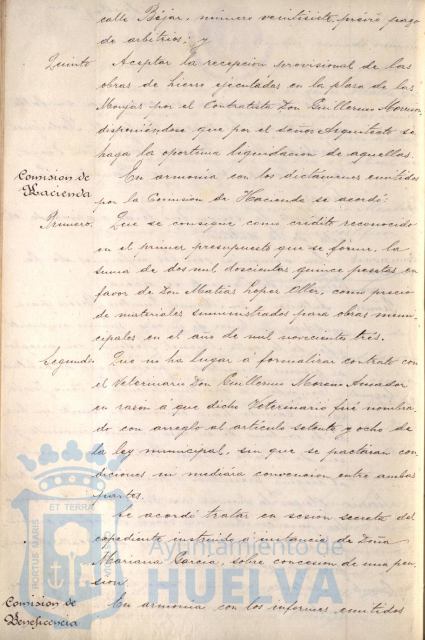 calle Béjar, número veintisiete, prévio pago
de arbitrios; y
Quinto Aceptar la recepcion provisional de las
obras de hierro ejecutadas en la plaza de las
Monjas por el Contratista Don Guillermo Moreno,
disponiéndose que por el señor Arquitecto se
haga la oportuna liquidacion de aquellas.
Comision de Hacienda
En armonia con los dictámenes emitidos
por la Comision de Hacienda se acordó:
Primero. Que se consigne como crédito reconocido
en el primer presupuesto que se forme, la
suma de dos mil doscientas quince pesetas en
favor de Don Matías Lopez Oller, como precio
de materiales suministrados para obras muni-
cipales en el año de mil novecientos tres.
Segundo. Que no ha lugar á formalizar contrato con
el Veterinario Don Guillermo Moreno Amador
en razón á que dicho Veterinario fué nombra-
do con arreglo al artículo setenta y ocho de
la ley municipal, sin que se pactáran con-
diciones ni mediára convencion entre ambas
partes.
Se acordó tratar en sesión secreta del
expediente instruido á instancia de Doña
Mariana Garcia, sobre concesion de una pen-
sion.
Comision de Beneficencia
En armonia con los informes emitidos
PORTUS MARIS
ET TERRAE
Ayuntamiento de
HUELVA